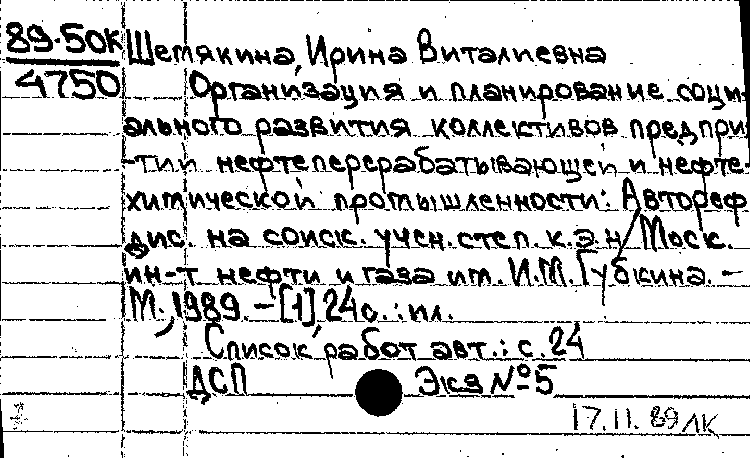 89-50К Шемякина, Ирина Виталиевна
4750 Организация и планирование соци-
ального развития коллективов предпри-
тий нефтеперерабатывающей и нефте-
химической промышленности: Автореф
дис. на соиск. учен. степ. к.э.н / Моск.
ин-т нефти и газа им. И.М. Губкина. -
М., 1989. - [1], 24 с. : ил.
Список работ авт.: с. 24
ДСП Экз № 5
17.11.89 ЛК